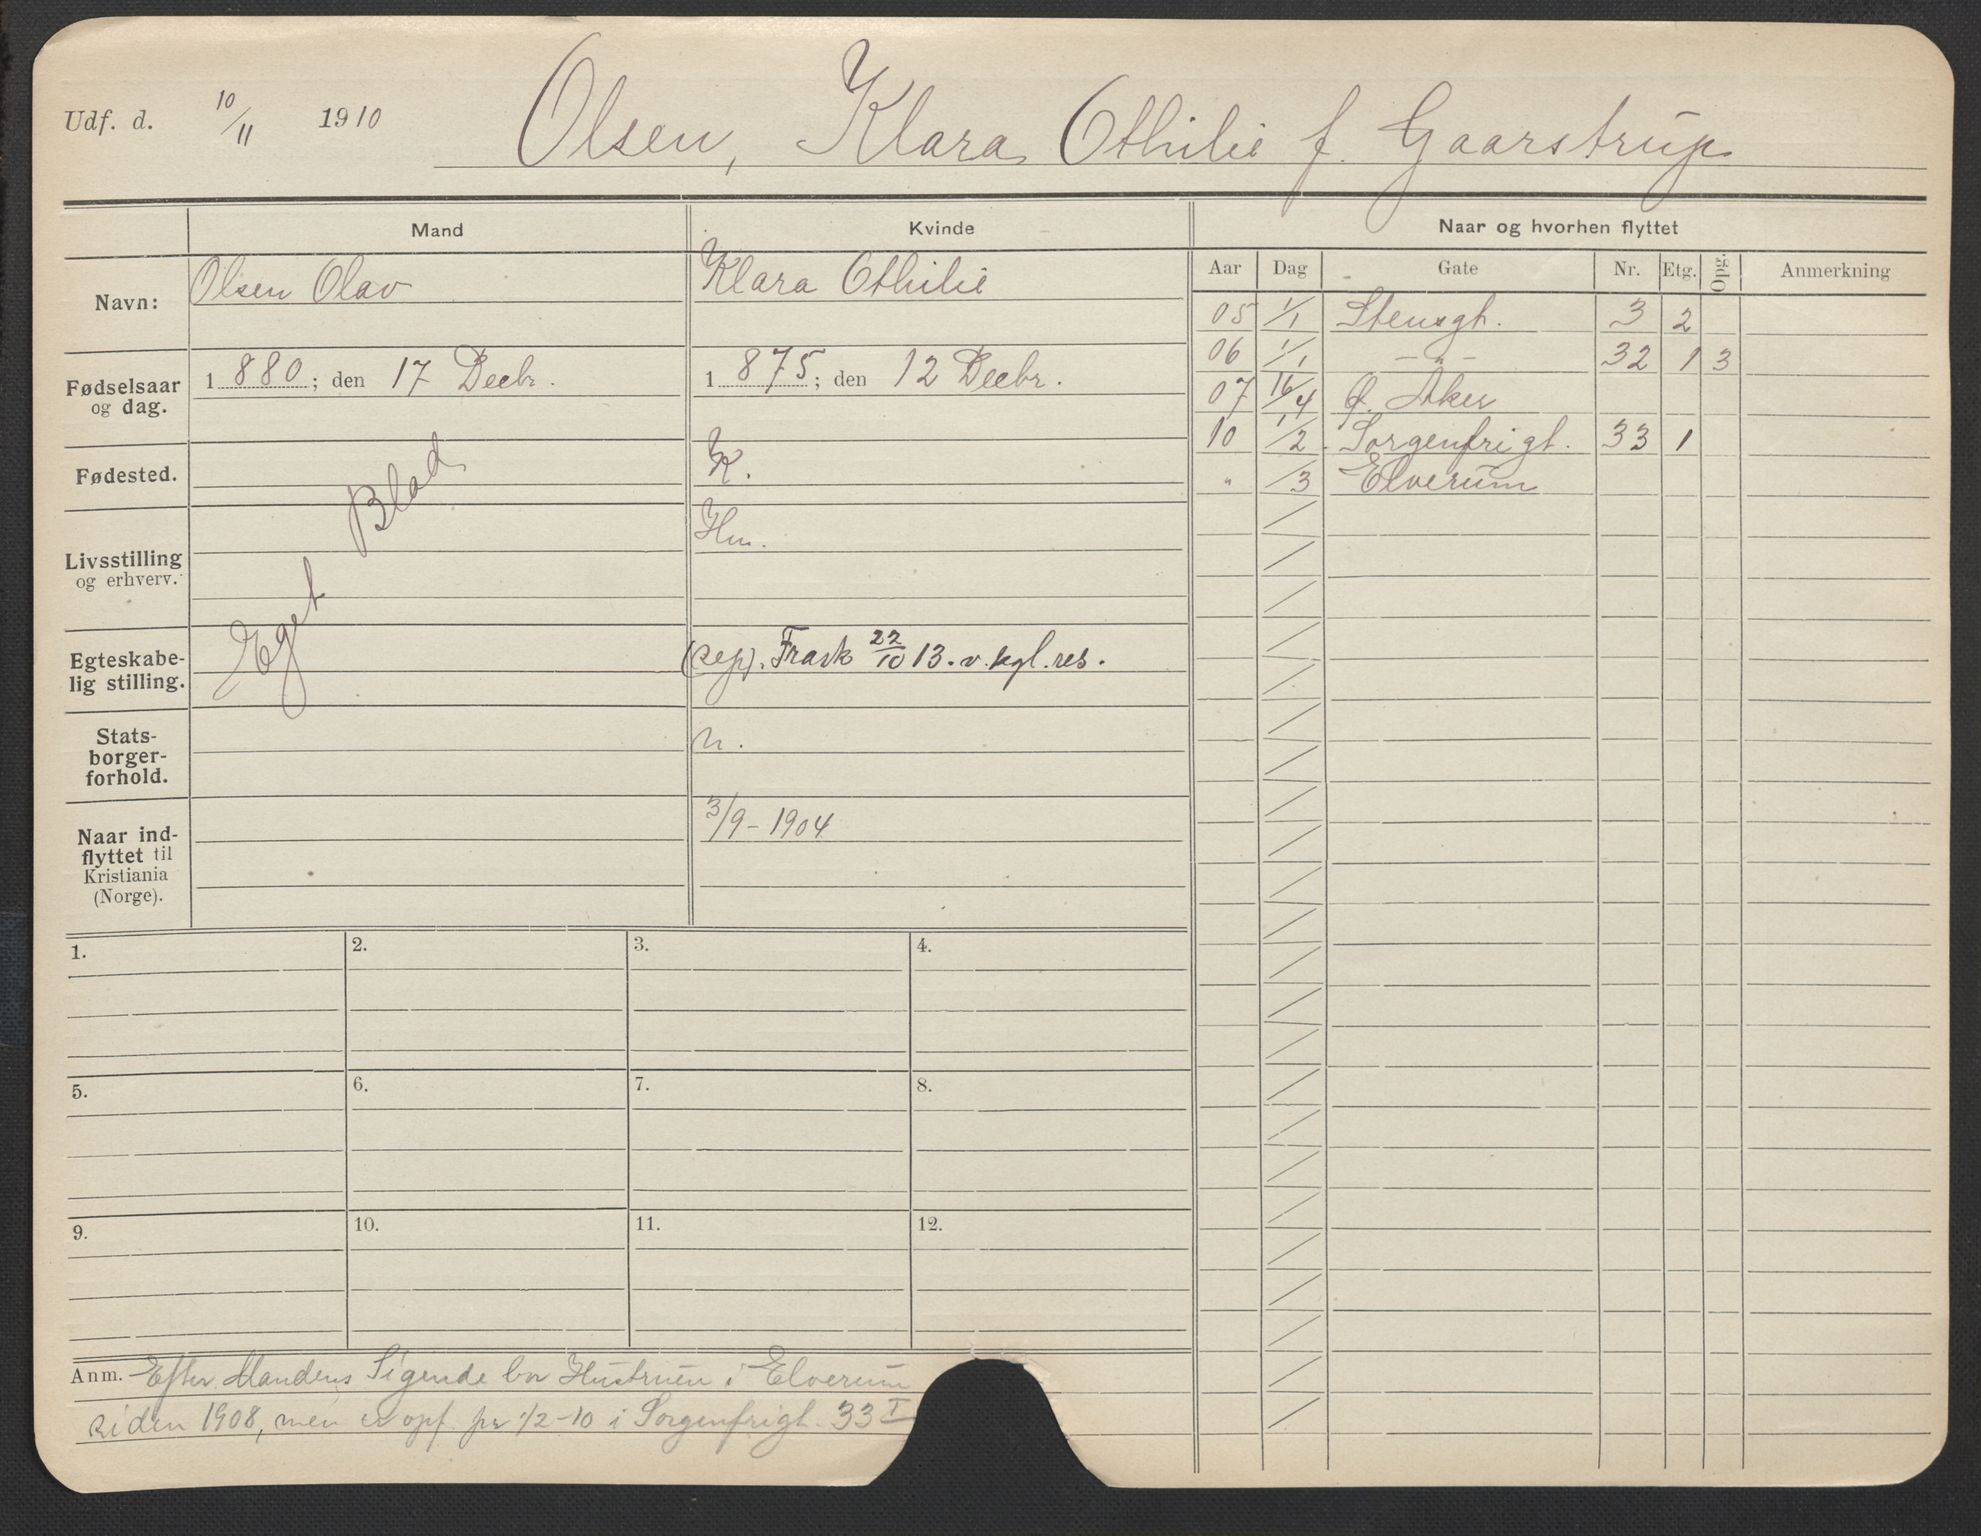 Udf. d. 10/11 1910 Olsen, Klara Othilie f. Gaarstrup
Mand Kvinde Naar og hvorhen flyttet
Aar Dag Gate Nr. Etg. Opg. Anmerkning
Navn: Olsen Olav Klara Othilie
05 1/1 Stensgt. 3 2
06 1/1 —"— 32 1 3
07 16/4 Ø. Aker
10 1/2 Sorgenfrigt. 33 1
" /3 Elverum
Fødselsaar og dag. 1880; den 17 Decbr. 1875; den 12 Decbr.
Fødested. K.
Eget Blad
Livsstilling og erhverv. Hm.
Egteskabe-
lig stilling. (sep). Frask 22/10 13. v. kgl. res.
Stats-
borger-
forhold. n.
Naar ind-
flyttet til
Kristiania
(Norge). 3/9 - 1904
1. 2. 3. 4.
5. 6. 7. 8.
9. 10. 11. 12.
Anm. Efter Mandens Sigende bor Hustruen i Elverum
siden 1908, men er opf. pr 1/2-10 i Sorgenfrigt. 33 I